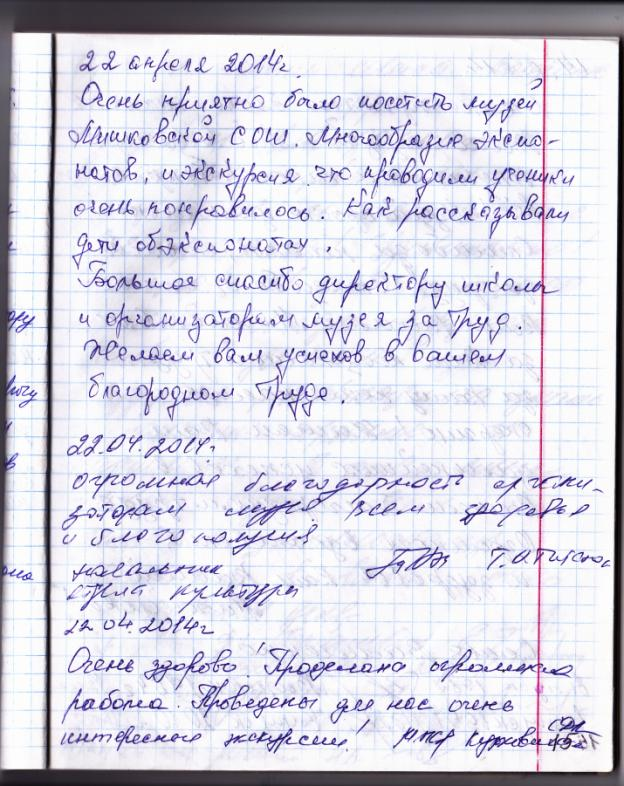 22 апреля 2014г.
Очень приятно было посетить музей
Мишковской СОШ. Многообразие экспо-
натов, и экскурсия что проводили ученики
очень понравилось. Как рассказывали
дети об экспонатах.
Большое спасибо директору школы
и организаторам музея за труд.
Желаем вам успехов в вашем
благородном труде.
22.04.2014г.
огромная благодарность органи-
заторам музея всем здоровья
и благополучия
начальник
отдела культуры
22.04.2014г
Очень здорово! Проделана огромная
работа. Проведены для нас очень
интересные экскурсии!